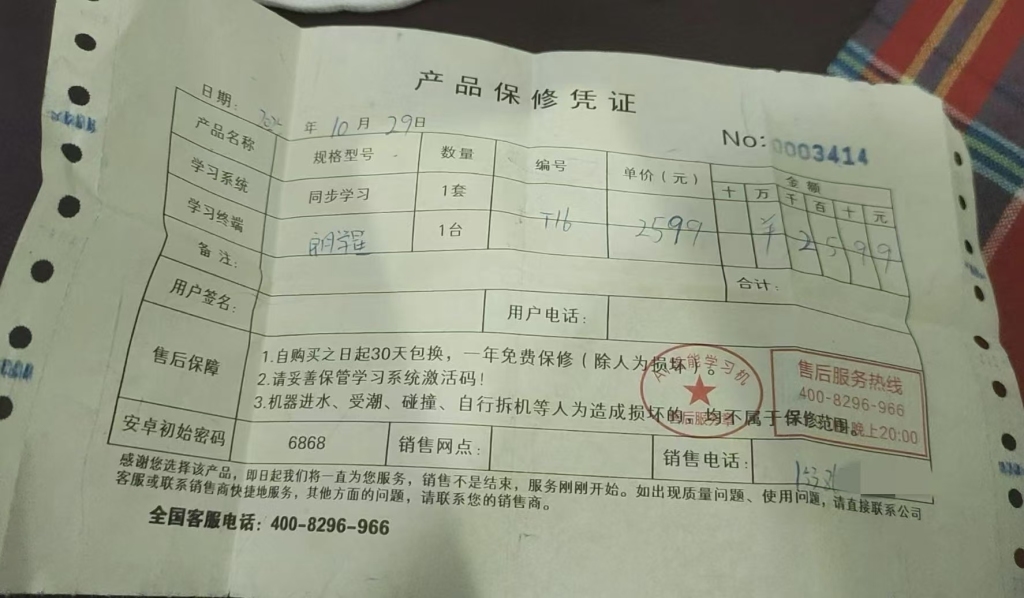 产品保修凭证
日期: 年 10 月 29 日
No: 0003414
产品名称 规格型号 数量 编号 单价（元） 金额
十 万 千 百 十 元
学习系统 同步学习 1套
学习终端 1台 T16 2599 ¥ 2 5 9 9
备注: 合计:
用户签名: 用户电话:
售后保障
1.自购买之日起30天包换，一年免费保修（除人为损坏）。
2.请妥善保管学习系统激活码！
3.机器进水、受潮、碰撞、自行拆机等人为造成损坏的，均不属于保修范围。
能学习机
售后服务热线
400-8296-966
晚上20:00
安卓初始密码 6868 销售网点: 销售电话:
感谢您选择该产品，即日起我们将一直为您服务，销售不是结束，服务刚刚开始。如出现质量问题、使用问题，请直接联系公司
客服或联系销售商快捷地服务，其他方面的问题，请联系您的销售商。
全国客服电话: 400-8296-966